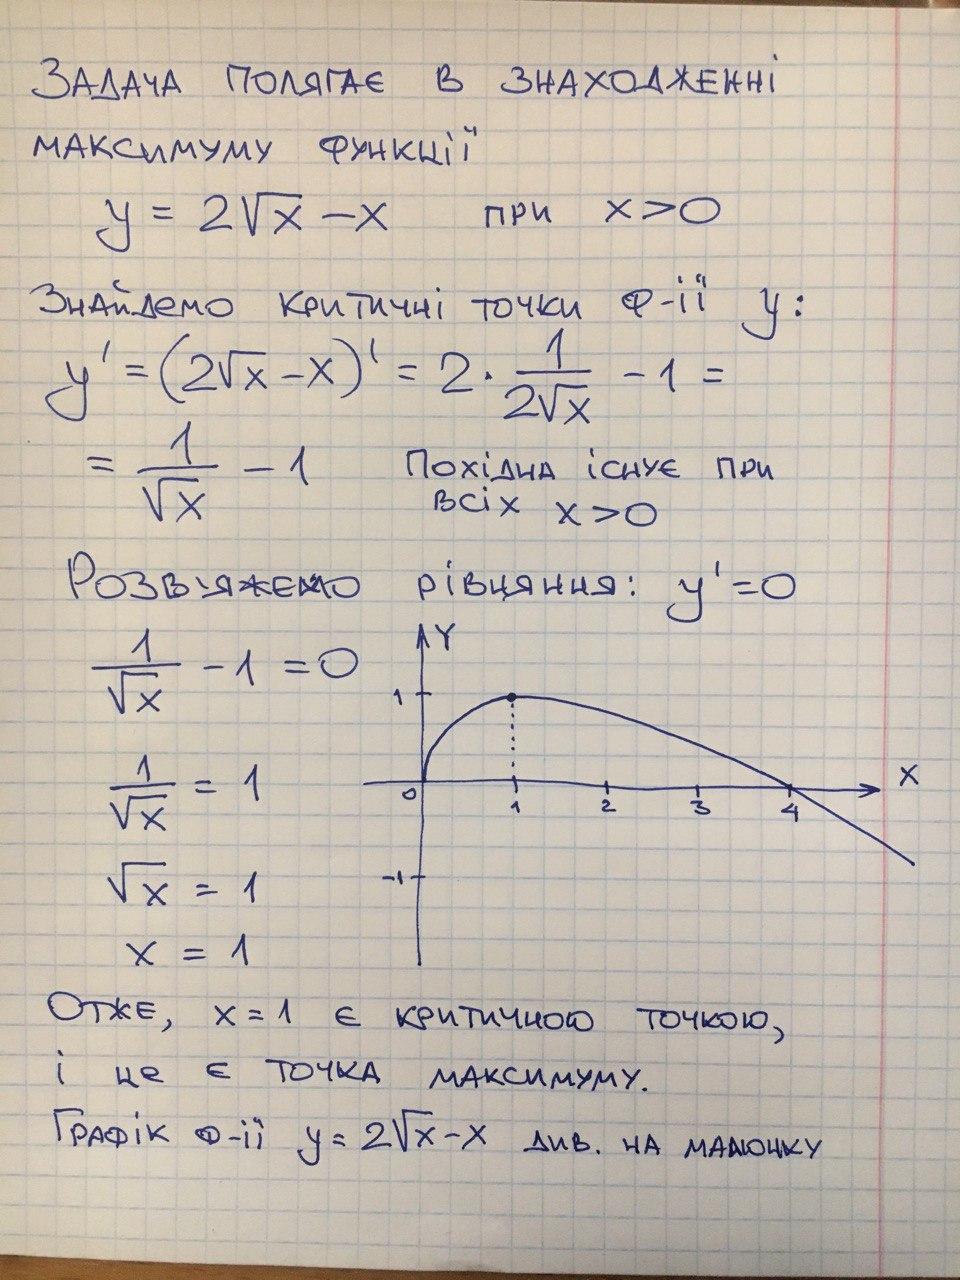 Задача полягає в знаходженні
максимуму функції
y = 2√x − x при x > 0
Знайдемо критичні точки ф-ії y:
y' = (2√x − x)' = 2 · 1/(2√x) − 1 =
= 1/√x − 1 Похідна існує при
всіх x > 0
Розв'яжемо рівняння: y' = 0
1/√x − 1 = 0
1/√x = 1
√x = 1
x = 1
Y
1
0 1 2 3 4 X
−1
Отже, x = 1 є критичною точкою,
і це є точка максимуму.
Графік ф-ії y = 2√x − x див. на малюнку